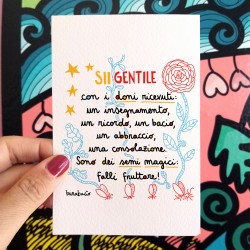 SII GENTILE
con i doni ricevuti:
un insegnamento,
un ricordo, un bacio,
un abbraccio,
una consolazione.
Sono dei semi magici:
falli fruttare!
burabacio